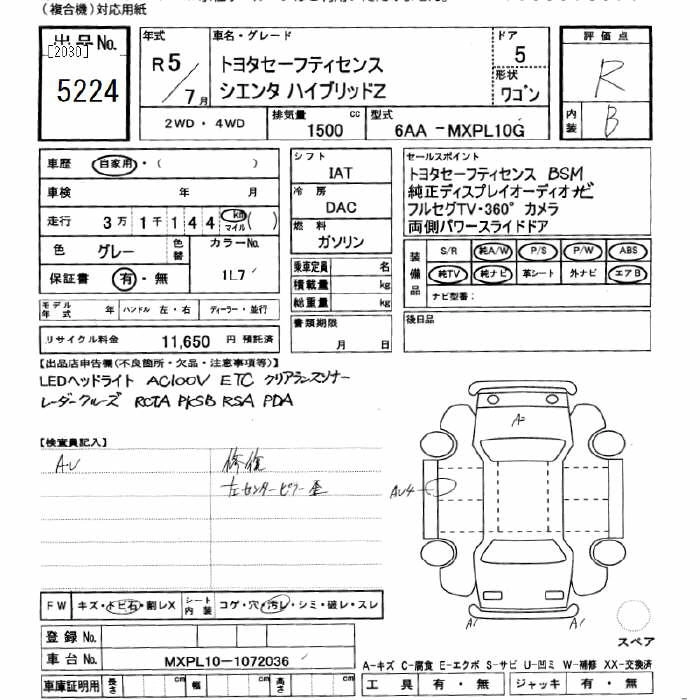 (複合機)対応用紙
出品No.
[2030]
5224
年式
R5/7月
車名・グレード
トヨタセーフティセンス
シエンタ ハイブリッドZ
ドア
5
形状
ワゴン
評価点
R
内装
B
2WD・4WD
排気量
1500 cc
型式
6AA -MXPL10G
車歴 自家用・( )
車検 年 月
走行 3万1千144 km マイル ( )
色 グレー
色替
カラーNo.
1L7
保証書 有・無
シフト
IAT
冷房
DAC
燃料
ガソリン
乗車定員 名
積載量 kg
総重量 kg
セールスポイント
トヨタセーフティセンス BSM
純正ディスプレイオーディオナビ
フルセグTV・360°カメラ
両側パワースライドドア
装備品
S/R 純A/W P/S P/W ABS
純TV 純ナビ 革シート 外ナビ エアB
ナビ型番:
モデル年式 年 ハンドル 左・右 ディーラー・並行
リサイクル料金 11,650 円 預託済
書類期限
月 日
後日品
【出品店申告欄(不良箇所・欠品・注意事項等)】
LEDヘッドライト AC100V ETC クリアランスソナー
レーダークルーズ RCTA PKSB RSA PDA
【検査員記入】
AU
修復
左センターピラー歪
A-
AU4
A1
A1
FW キズ・トビ石・割レX
シート内装 コゲ・穴・汚レ・シミ・破レ・スレ
スペア
登録No.
車台No. MXPL10-1072036
A-キズ C-腐食 E-エクボ S-サビ U-凹ミ W-補修 XX-交換済
車庫証明用 長さ cm 幅 cm 高さ cm
工具 有・無 ジャッキ 有・無